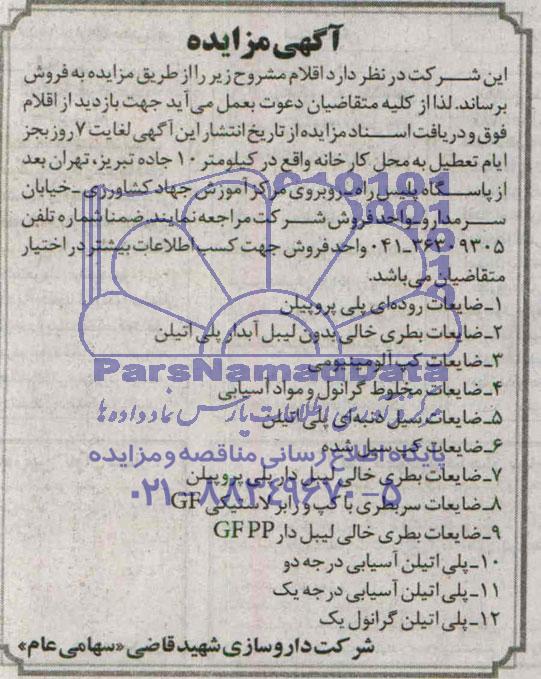 آگهی مزایده
این شرکت در نظر دارد اقلام مشروح زیر را از طریق مزایده به فروش
برساند. لذا از کلیه متقاضیان دعوت بعمل می‌آید جهت بازدید از اقلام
فوق و دریافت اسناد مزایده از تاریخ انتشار این آگهی لغایت ۷ روز بجز
ایام تعطیل به محل کارخانه واقع در کیلومتر ۱۰ جاده تبریز، تهران بعد
از پاسگاه پلیس راه، روبروی مرکز آموزش جهاد کشاورزی ـ خیابان
سرمدارو ـ واحد فروش شرکت مراجعه نمایند. ضمنا شماره تلفن
۳۶۳۰۹۳۰۵ـ۰۴۱ واحد فروش جهت کسب اطلاعات بیشتر در اختیار
متقاضیان می‌باشد.
۱ـ ضایعات روده‌ای پلی پروپیلن
۲ـ ضایعات بطری خالی بدون لیبل آبدار پلی اتیلن
۳ـ ضایعات کپ آلومینیومی
۴ـ ضایعات مخلوط گرانول و مواد آسیابی
ParsNamadData
۵ـ ضایعات سیل دنبه‌ای پلی اتیلن
مرکز فرآوری اطلاعات پارس نماد داده‌ها
۶ـ ضایعات کپ سیل شده
پایگاه اطلاع رسانی مناقصه و مزایده
۷ـ ضایعات بطری خالی لیبل دار پلی پروپیلن
۰۲۱-۸۸۳۴۹۶۷۰-۵
۸ـ ضایعات سربطری با کپ و رابر لاستیکی GF
۹ـ ضایعات بطری خالی لیبل دار GF PP
۱۰ـ پلی اتیلن آسیابی درجه دو
۱۱ـ پلی اتیلن آسیابی درجه یک
۱۲ـ پلی اتیلن گرانول یک
شرکت داروسازی شهید قاضی «سهامی عام»